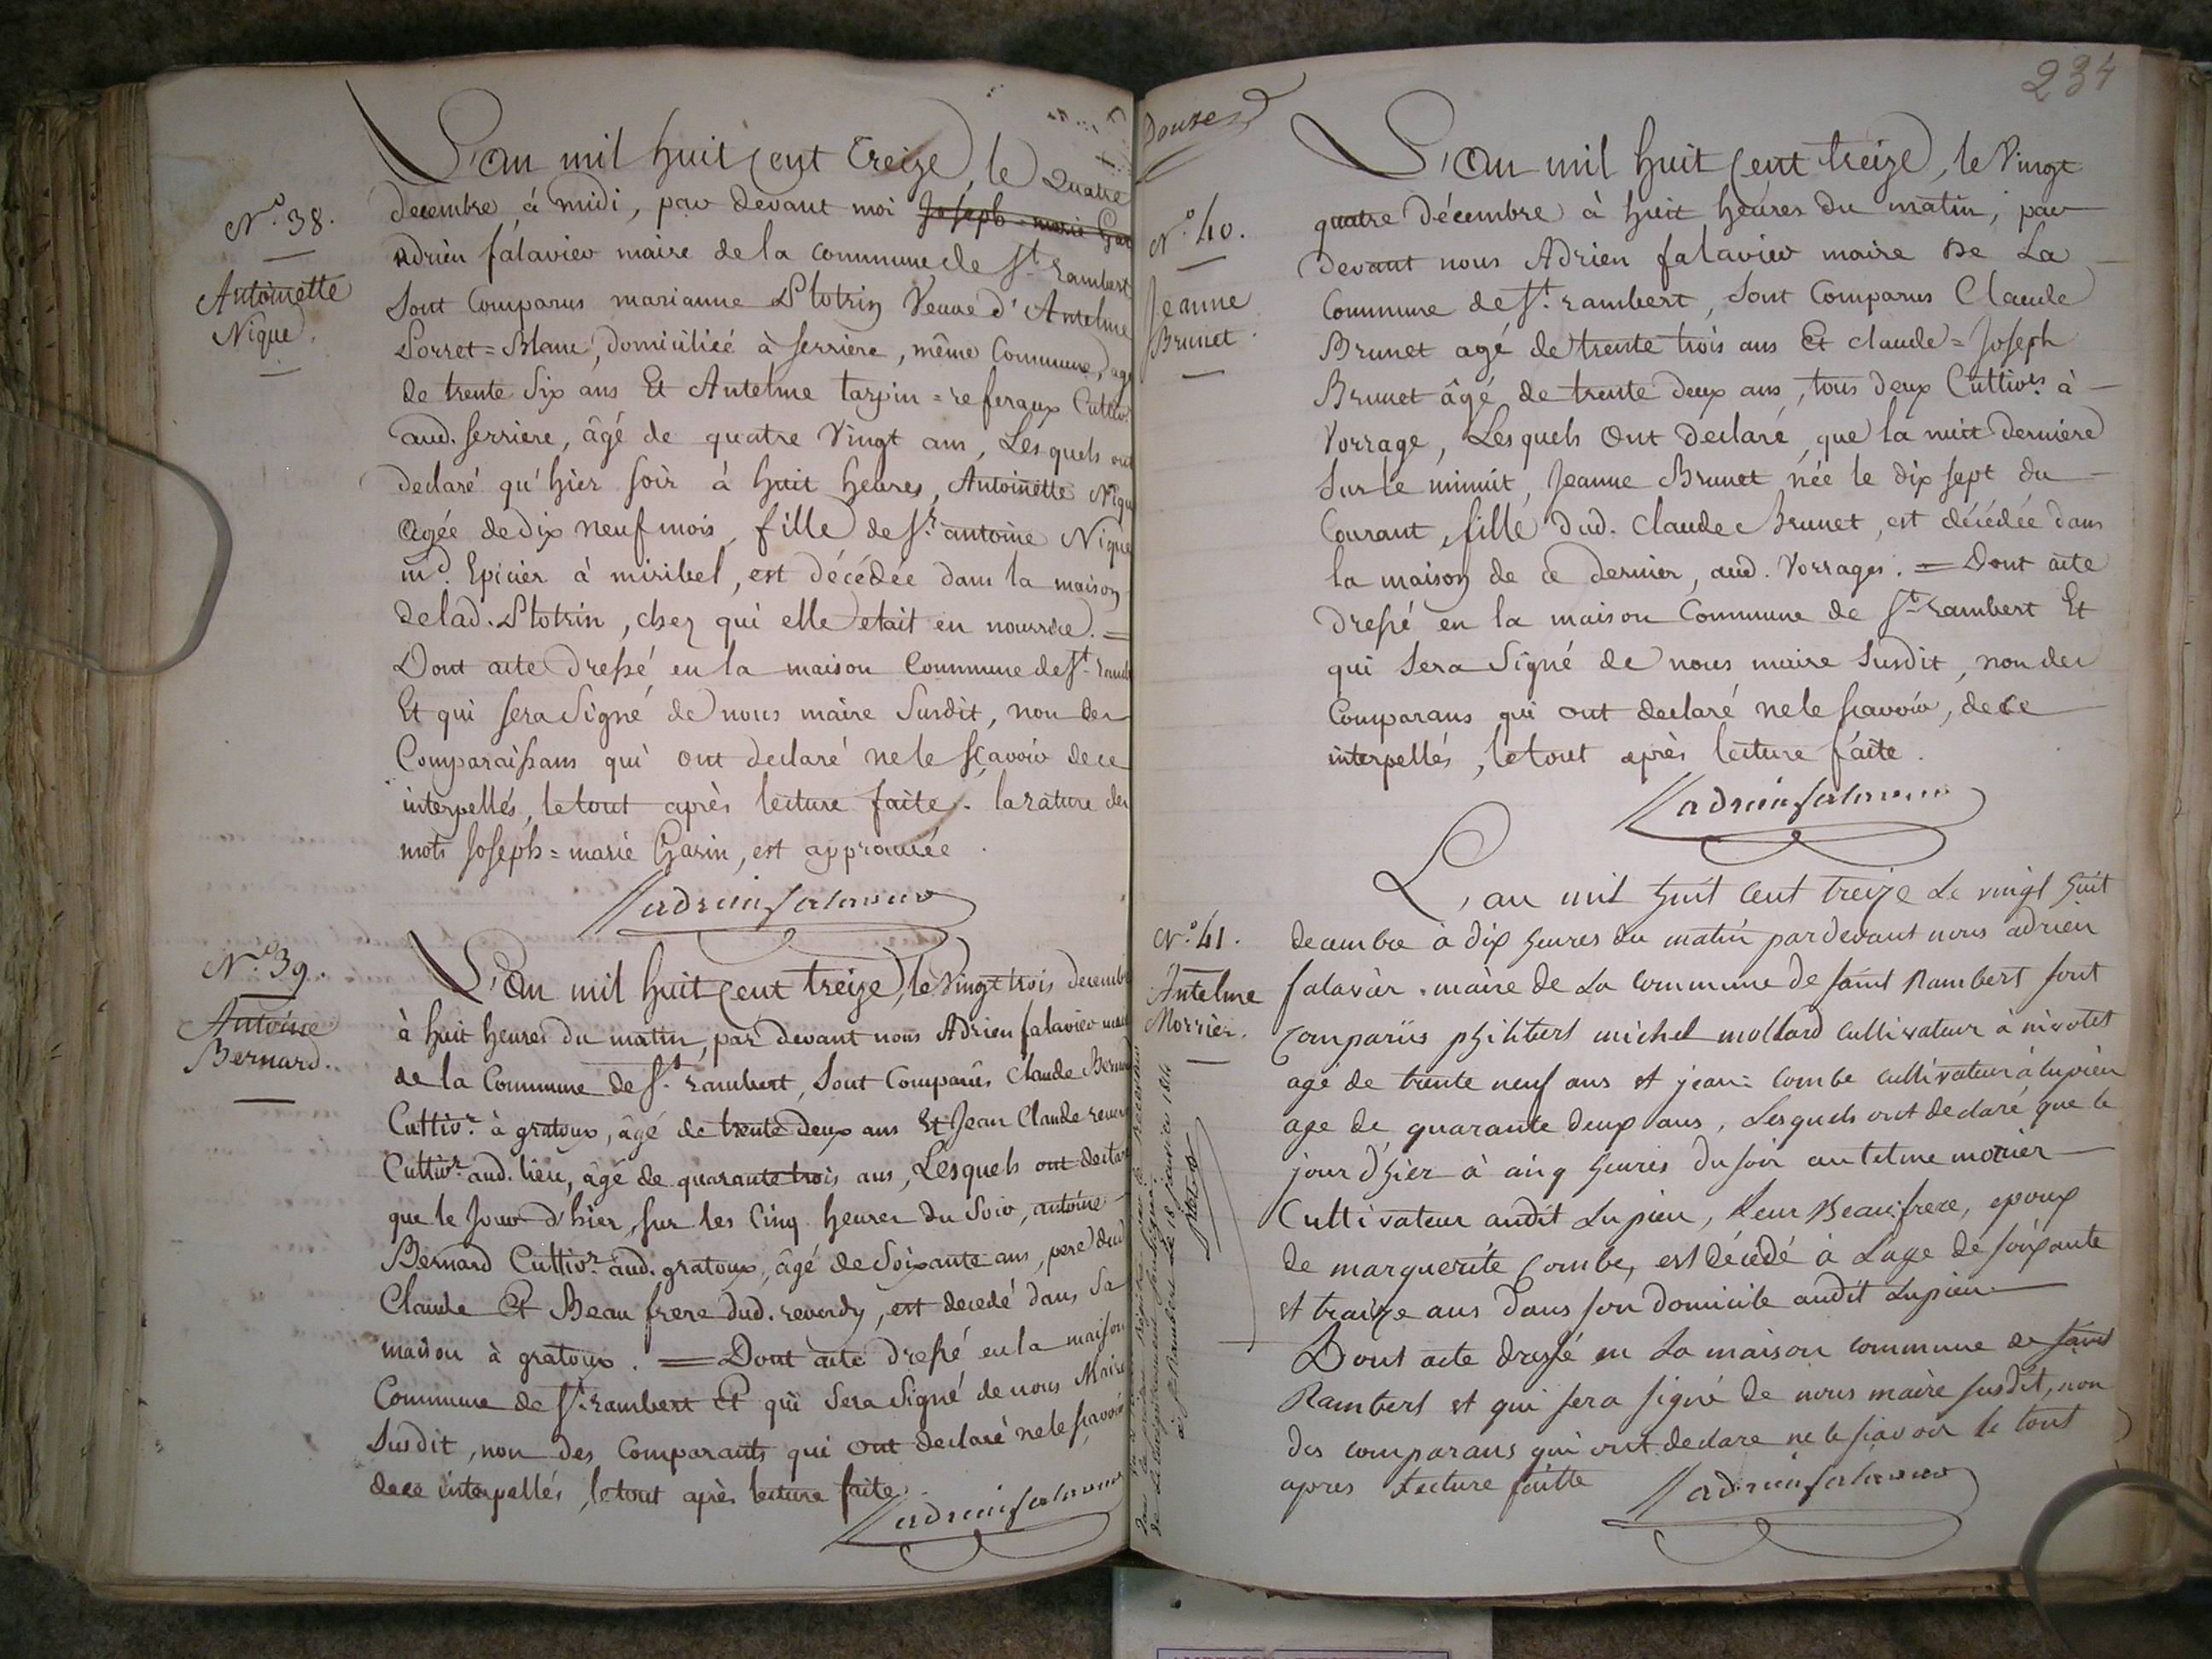 N.º 38.
Antoinette
Nique.
L'an mil huit cent treize, le quatre
decembre, à midi, par devant moi Joseph=marie Gar
adrien falavier maire de la commune de St. rambert
sont comparus marianne Plotrin Veuve d'Antelme
Porret=Blanc, domiciliée à serriere, même Commune, ag
de trente six ans Et Antelme tarpin=referaux Cultiv.
aud. serriere, âgé de quatre vingt ans, Lesquels ont
declaré qu'hier soir à huit heures, Antoinette Niqu
agée de dix neuf mois, fille de Sr. antoine Nique
md. Epicier à miribel, est décédée dans la maison
de lad. Plotrin, chez qui elle etait en nourrice. =
Dont acte dressé en la maison Commune de St. ramb
Et qui sera signé de nous maire susdit, non des
Comparaissans qui ont declaré ne le sçavoir de ce
interpellés, le tout après lecture faite. la rature des
mots Joseph=marie Garin, est approuvée.
adrien falavier
N.º 39.
Antoine
Bernard.
L'an mil huit cent treize, le vingt trois decemb
à huit heures du matin, par devant nous Adrien falavier mai
de la Commune de St. rambert, sont Comparûs Claude Bern
Cultivr. à gratoux, âgé de trente deux ans Et Jean Claude rever
Cultivr. aud. lieu, âgé de quarante trois ans, Lesquels ont declar
que le Jour d'hier, sur les Cinq heures du Soir, antoine
Bernard Cultivr. aud. gratoux, âgé de soixante ans, pere dud
Claude Et Beau frere dud. reverdy, est decedé dans sa
maison à gratoux. = Dont acte dressé en la maison
Commune de St. rambert Et qui sera signé de nous Maire
susdit, non des Comparants qui ont declaré ne le sçavoir
de ce interpellés, le tout après lecture faite.
adrien falavier
234
Douze
N.º 40.
Jeanne
Brunet.
L'an mil huit cent treize, le vingt
quatre décembre à huit heures du matin, par
devant nous Adrien falavier maire de La
Commune de St. rambert, sont Comparus Claude
Brunet agé de trente trois ans Et claude=Joseph
Brunet âgé de trente deux ans, tous deux Cultivrs. à
Vorrage, Lesquels ont declaré, que la nuit derniere
sur le minuit, Jeanne Brunet née le dix sept du
Courant, fille dud. Claude Brunet, est décédée dans
la maison de ce dernier, aud. Vorrages. = Dont acte
dressé en la maison Commune de St. rambert Et
qui sera signé de nous maire susdit, non des
Comparans qui ont declaré ne le sçavoir, de ce
interpellés, le tout après lecture faite.
adrien falavier
N.º 41.
Antelme
Morrier.
L'an mil huit cent treize le vingt huit
decembre à dix heures du matin par devant nous adrien
falavier maire de la commune de saint Rambert sont
comparûs philibert michel mollard cultivateur à nivolet
agé de trente neuf ans et jean combe cultivateur à lupieu
age de quarante deux ans, Lesquels ont declaré que le
jour d'hier à cinq heures du soir antelme morier
Cultivateur audit Lupieu, leur Beau frere, epoux
de marguerite Combe, est décédé à L'age de soixante
et traize ans dans son domicile audit Lupieu
Dont acte dressé en la maison commune de saint
Rambert et qui sera signé de nous maire susdit, non
des comparans qui ont declare ne le sçavoir le tout
apres lecture faitte
adrien falavier
à St. Rambert le 18 janvier 1814